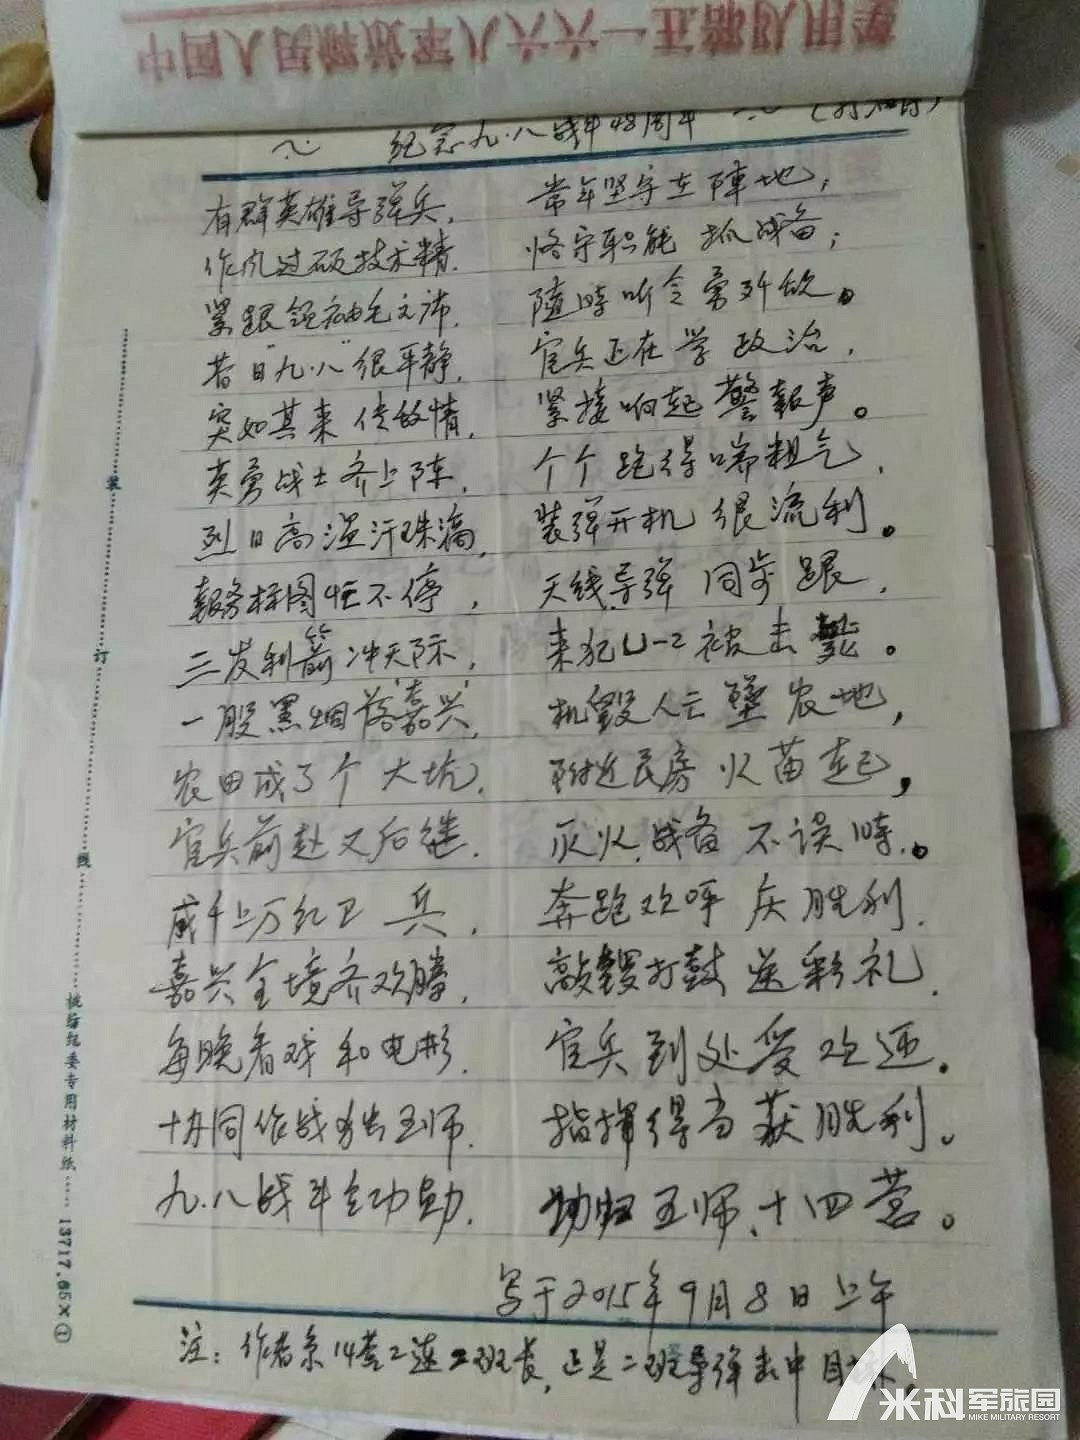 中国人民解放军八六六一部队信用笺
∴ 纪念九.八战斗48周年 ∴ (打油诗)
有群英雄导弹兵, 常年坚守在阵地;
作风过硬技术精. 恪守职能抓战备;
紧跟领袖毛主席. 随時听令勇歼敌。
昔日"九.八"很平静, 官兵正在学政治,
突如其来传敌情, 紧接响起警報声。
英勇战士齐上阵, 个个跑得喘粗气,
烈日高温汗珠滴, 装弹开机很流利。
報务标图忙不停, 天线.导弹同步跟,
三发利箭冲天际, 来犯U-2被击毙。
一股黑烟落"嘉兴", 机毁人亡墜农地,
农田成了个大坑. 附近民房火苗起,
官兵前赴又后继. 灭火.战备不误時.。
成千上万红卫兵, 奔跑欢呼庆胜利.
嘉兴全境齐欢腾, 敲锣打鼓送彩礼.
每晚看戏和电影. 官兵到处受欢迎.
协同作战 指挥得当获胜利。
九.八战斗 功归五师、十四营。
写于2015年9月8日上午
注: 作者系14营二连二班长, 正是二班导弹击中目标.
装
订
线
专用材料纸 13717.65×①
米科军旅园
MIKE MILITARY RESORT